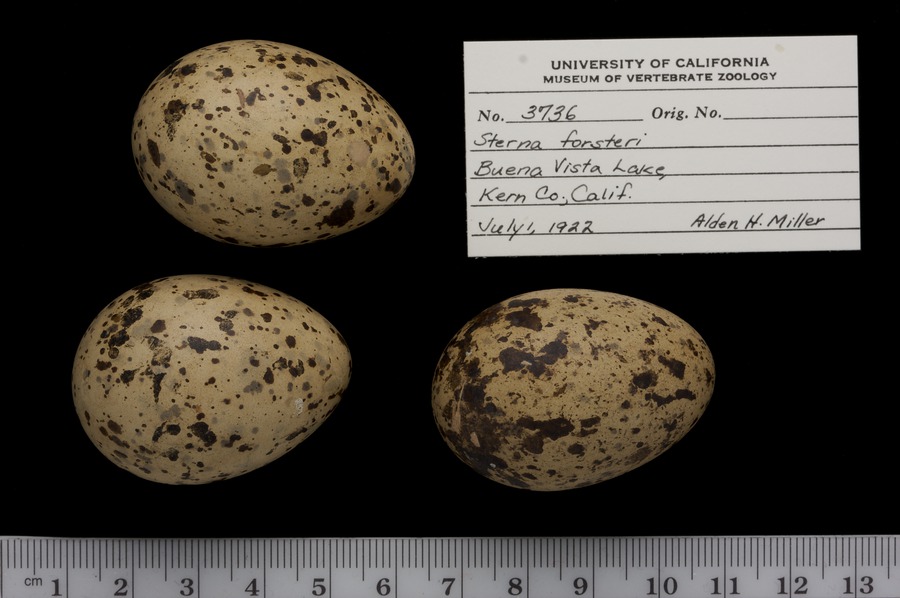 UNIVERSITY OF CALIFORNIA
MUSEUM OF VERTEBRATE ZOOLOGY
No. 3736 Orig. No.
Sterna forsteri
Buena Vista Lake,
Kern Co., Calif.
July 1, 1922 Alden H. Miller
cm 1 2 3 4 5 6 7 8 9 10 11 12 13